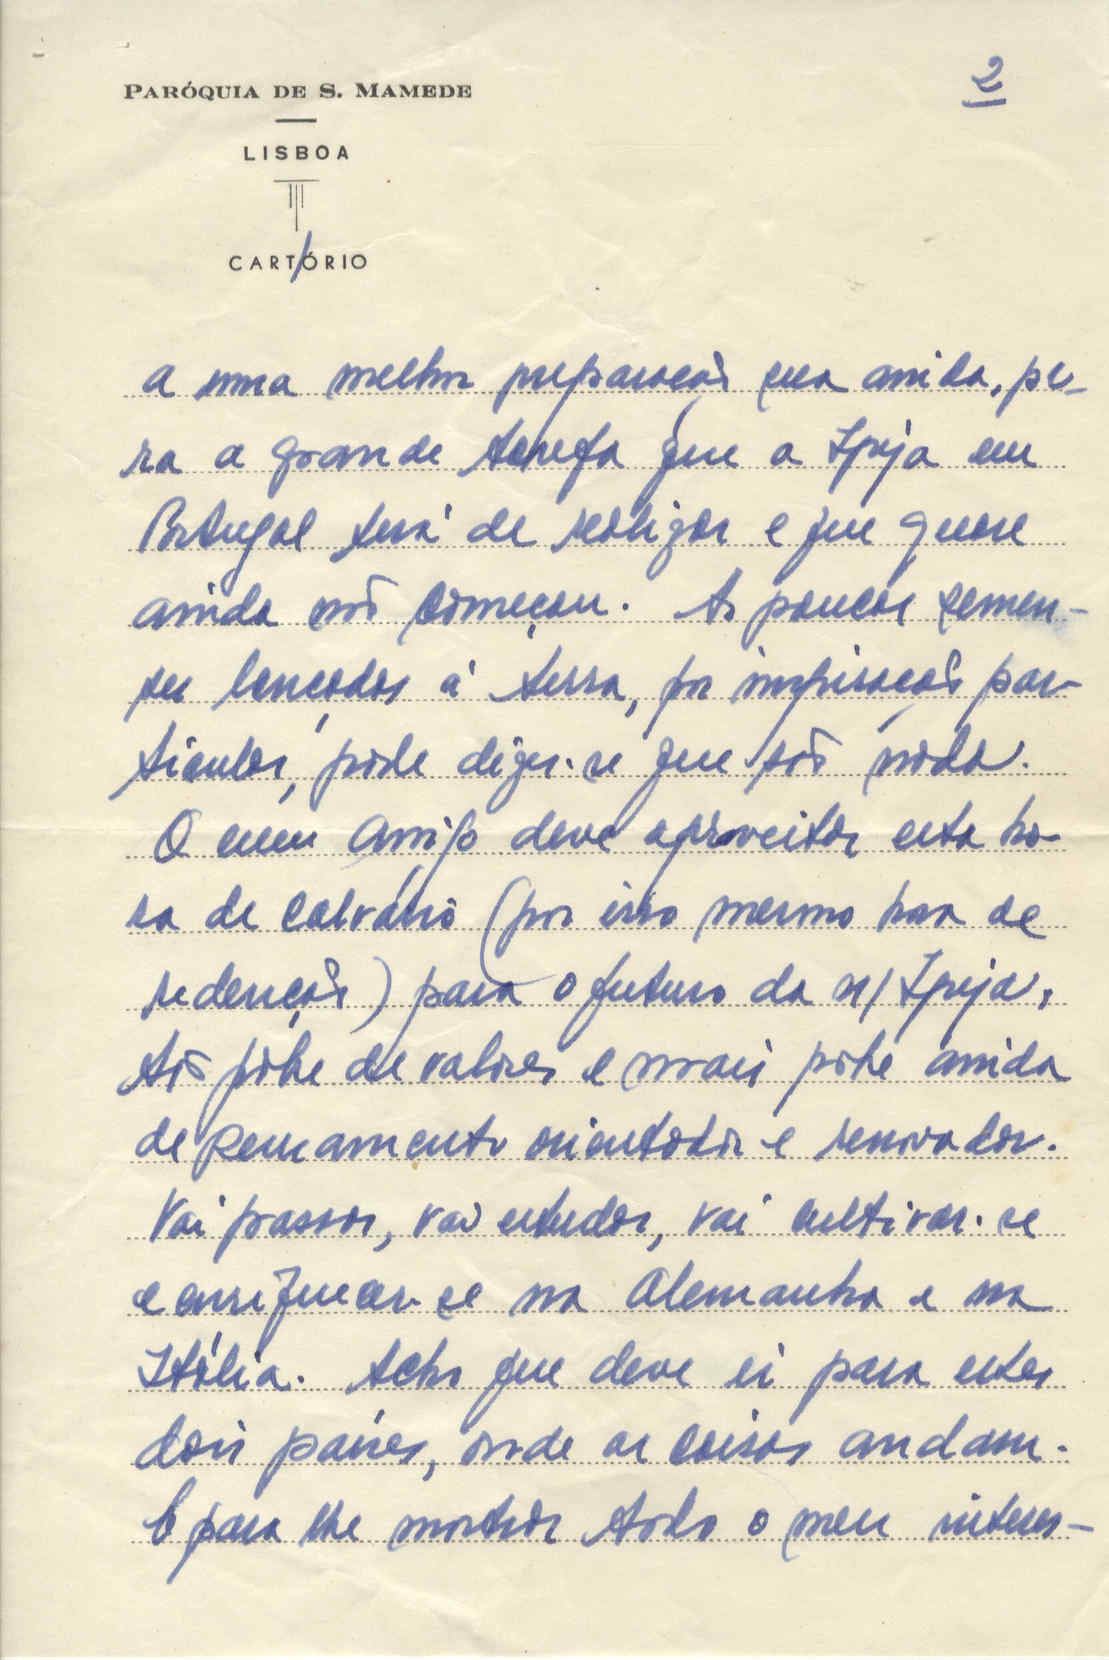 PARÓQUIA DE S. MAMEDE
LISBOA
CARTÓRIO
2
a uma melhor preparação sua ainda, pa-
ra a grande tarefa que a Igreja em
Portugal terá de realizar e que quase
ainda não começou. As poucas semen-
tes lançadas à terra, por inspiração par-
ticular, pode dizer-se que são nada.
O meu Amigo deve aproveitar esta ho-
ra de calvário (por isso mesmo hora de
redenção) para o futuro da n/ Igreja,
tão pobre de valores e mais pobre ainda
de pensamento orientador e renovador.
Vai passar, vai estudar, vai cultivar-se
e enriquecer-se na Alemanha e na
Itália. Acho que deve ir para estes
dois países, onde as coisas andam.
E para lhe mostrar todo o meu interes-